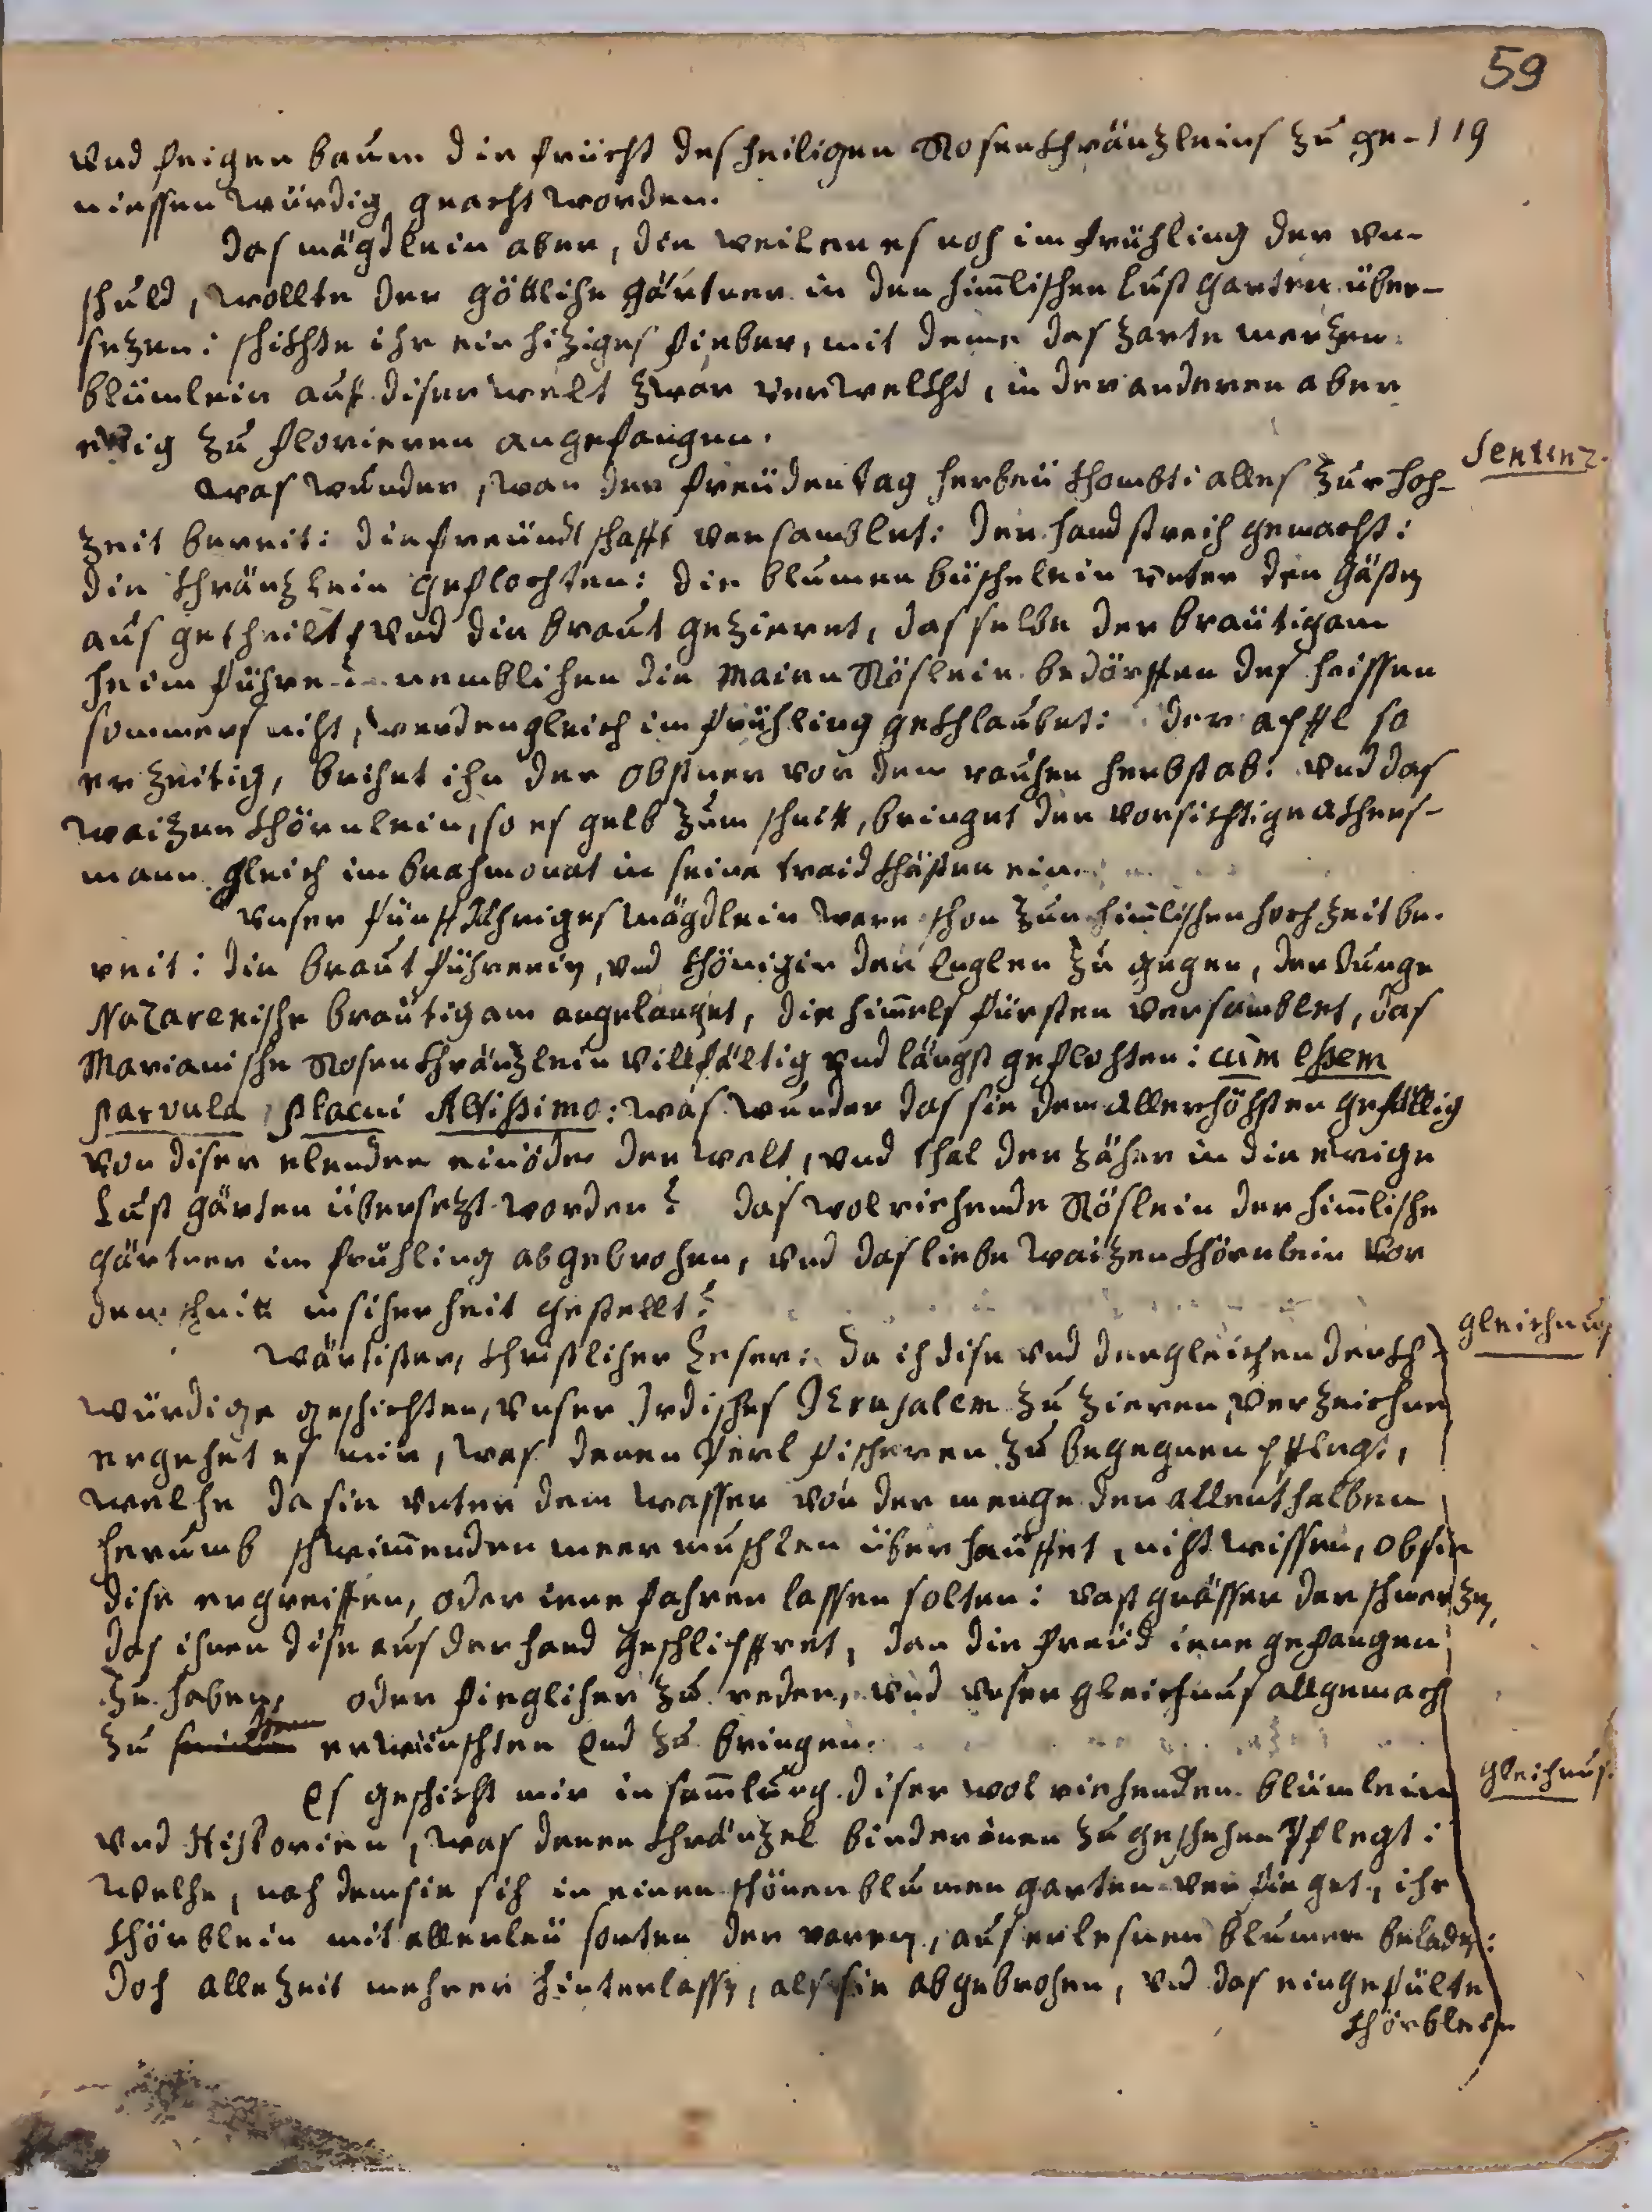 59
vnd feigen baum die frücht des heiligen Rosenkhränzleins zu ge- 119
niessen würdig geacht worden.
das mägdlein aber, die weilen es noh im frühling der vn-
schuld, wollte der göttlihe gärtner in den himlischen lustgarten über-
sezen: schikhte ihr ein hiziges fieber, mit deme das zarte merzen-
blümlein auf diser welt zwar verwelkht, in der anderen aber
ewig zu florieren angefangen.
Sentenz.
was wunder, wan der freüdentag herbeü khombt: alles zur hoh-
zeit bereit: die freündtschafft versamblet: der handstreih gemacht:
die khränzlein geflochten: die blumen büschelein vnter den gästen
ausgetheilt, vnd die braut gezieret, das selbe der bräutigam
heim führe: nemblihen die Maien Röslein bedörffen des heissen
sommers niht, werden gleich im frühling gekhlaubet: der apffl so
er zeitig, brihet ihn der obstner vor dem rauhen herbst ab: vnd das
waizen khörnlein, so es gelb zum schnitt, bringet der vorsichtige akhers-
mann gleich im brahmonat in seine traidkhästen ein.
vnser fünff Jähriges mägdlein ware schon zur himlischen hochzeit be-
reit: die braut führerin, vnd khönigin der Englen zu gegen, der Junge
Nazarenishe bräutigam angelanget, die himels fürsten versamblet, das
Marianishe Rosenkhränzlein villfältig vnd längst geflohten: cùm essem
parvula, placui Altissimo: was wunder das sie dem Allerhöhsten gefällig
von diser elenden einöde der welt, vnd thal der zäher in die ewige
lust gärten übersezt worden? das wolriehende Röslein der himlishe
gärtner im frühling abgebrohen, vnd das liebe waizen khörnlein vor
dem schnitt in siherheit gestellt?
gleichnus
wärtister, khristliher leser: da ich dise vnd dergleichen denkh-
würdige geschichten, vnser Irdishes Jerusalem zu zieren, verzeichne
ergehet es mir, was denen Perl fischeren zu begegnen pflegt,
welhe da sie vnter dem wasser von der menge der allenthalben
herumb schwimenden meer muschlen überhäuffet, niht wissen, ob sie
dise ergreiffen, oder iene fahren lassen solten: vast grösser der schmerzen,
das ihnen dise aus der hand geschlipffret, dan die freüd iene gefangen
zu haben, oder fieglicher zu reden, vnd vnser gleichnus allgemach
zu erwünschten End zu bringen.
gleichnus.
Es geschicht mir in samlung diser wol riehenden blümlein
vnd Historien, was denen khränzel binderinen zu geschehen Pflegt:
welhe, nah dem sie sih in einen schönen blumen garten verfieget, ihr
khörblein mit allerleü sorten der raren, auserlesnen blumen beladen:
doh allezeit mehrer hinterlassen, als sie abgebrohen, vnd das eingefülte
khörblein